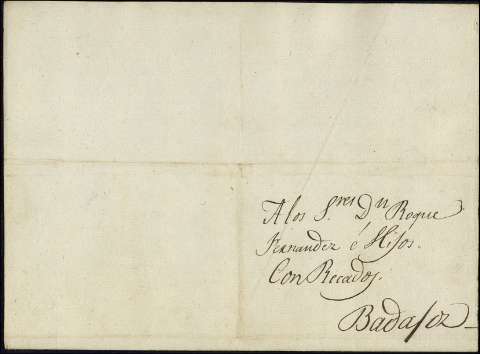 A los S.res D.n Roque
Fernandez é Hijos.
Con Recados.
Badajoz